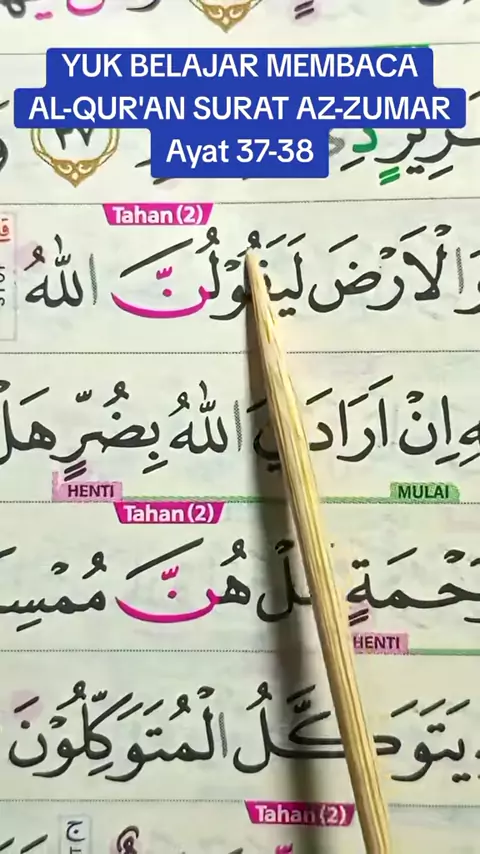 YUK BELAJAR MEMBACA
AL-QUR'AN SURAT AZ-ZUMAR
Ayat 37-38
٣٧
Tahan (2)
وَالْاَرْضَ لَيَقُوْلُنَّ اللّٰهُ
اِنْ اَرَادَنِيَ اللّٰهُ بِضُرٍّ هَلْ
MULAI HENTI
Tahan (2)
هَلْ هُنَّ
HENTI
يَتَوَكَّلُ الْمُتَوَكِّلُوْنَ
Tahan (2)